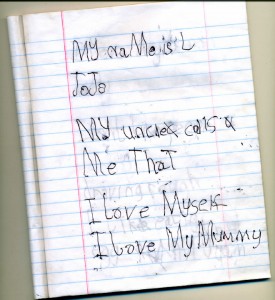 MY NaMe is L
JoJo
MY uncle calls
Me That
I Love Myself
I Love My Mummy